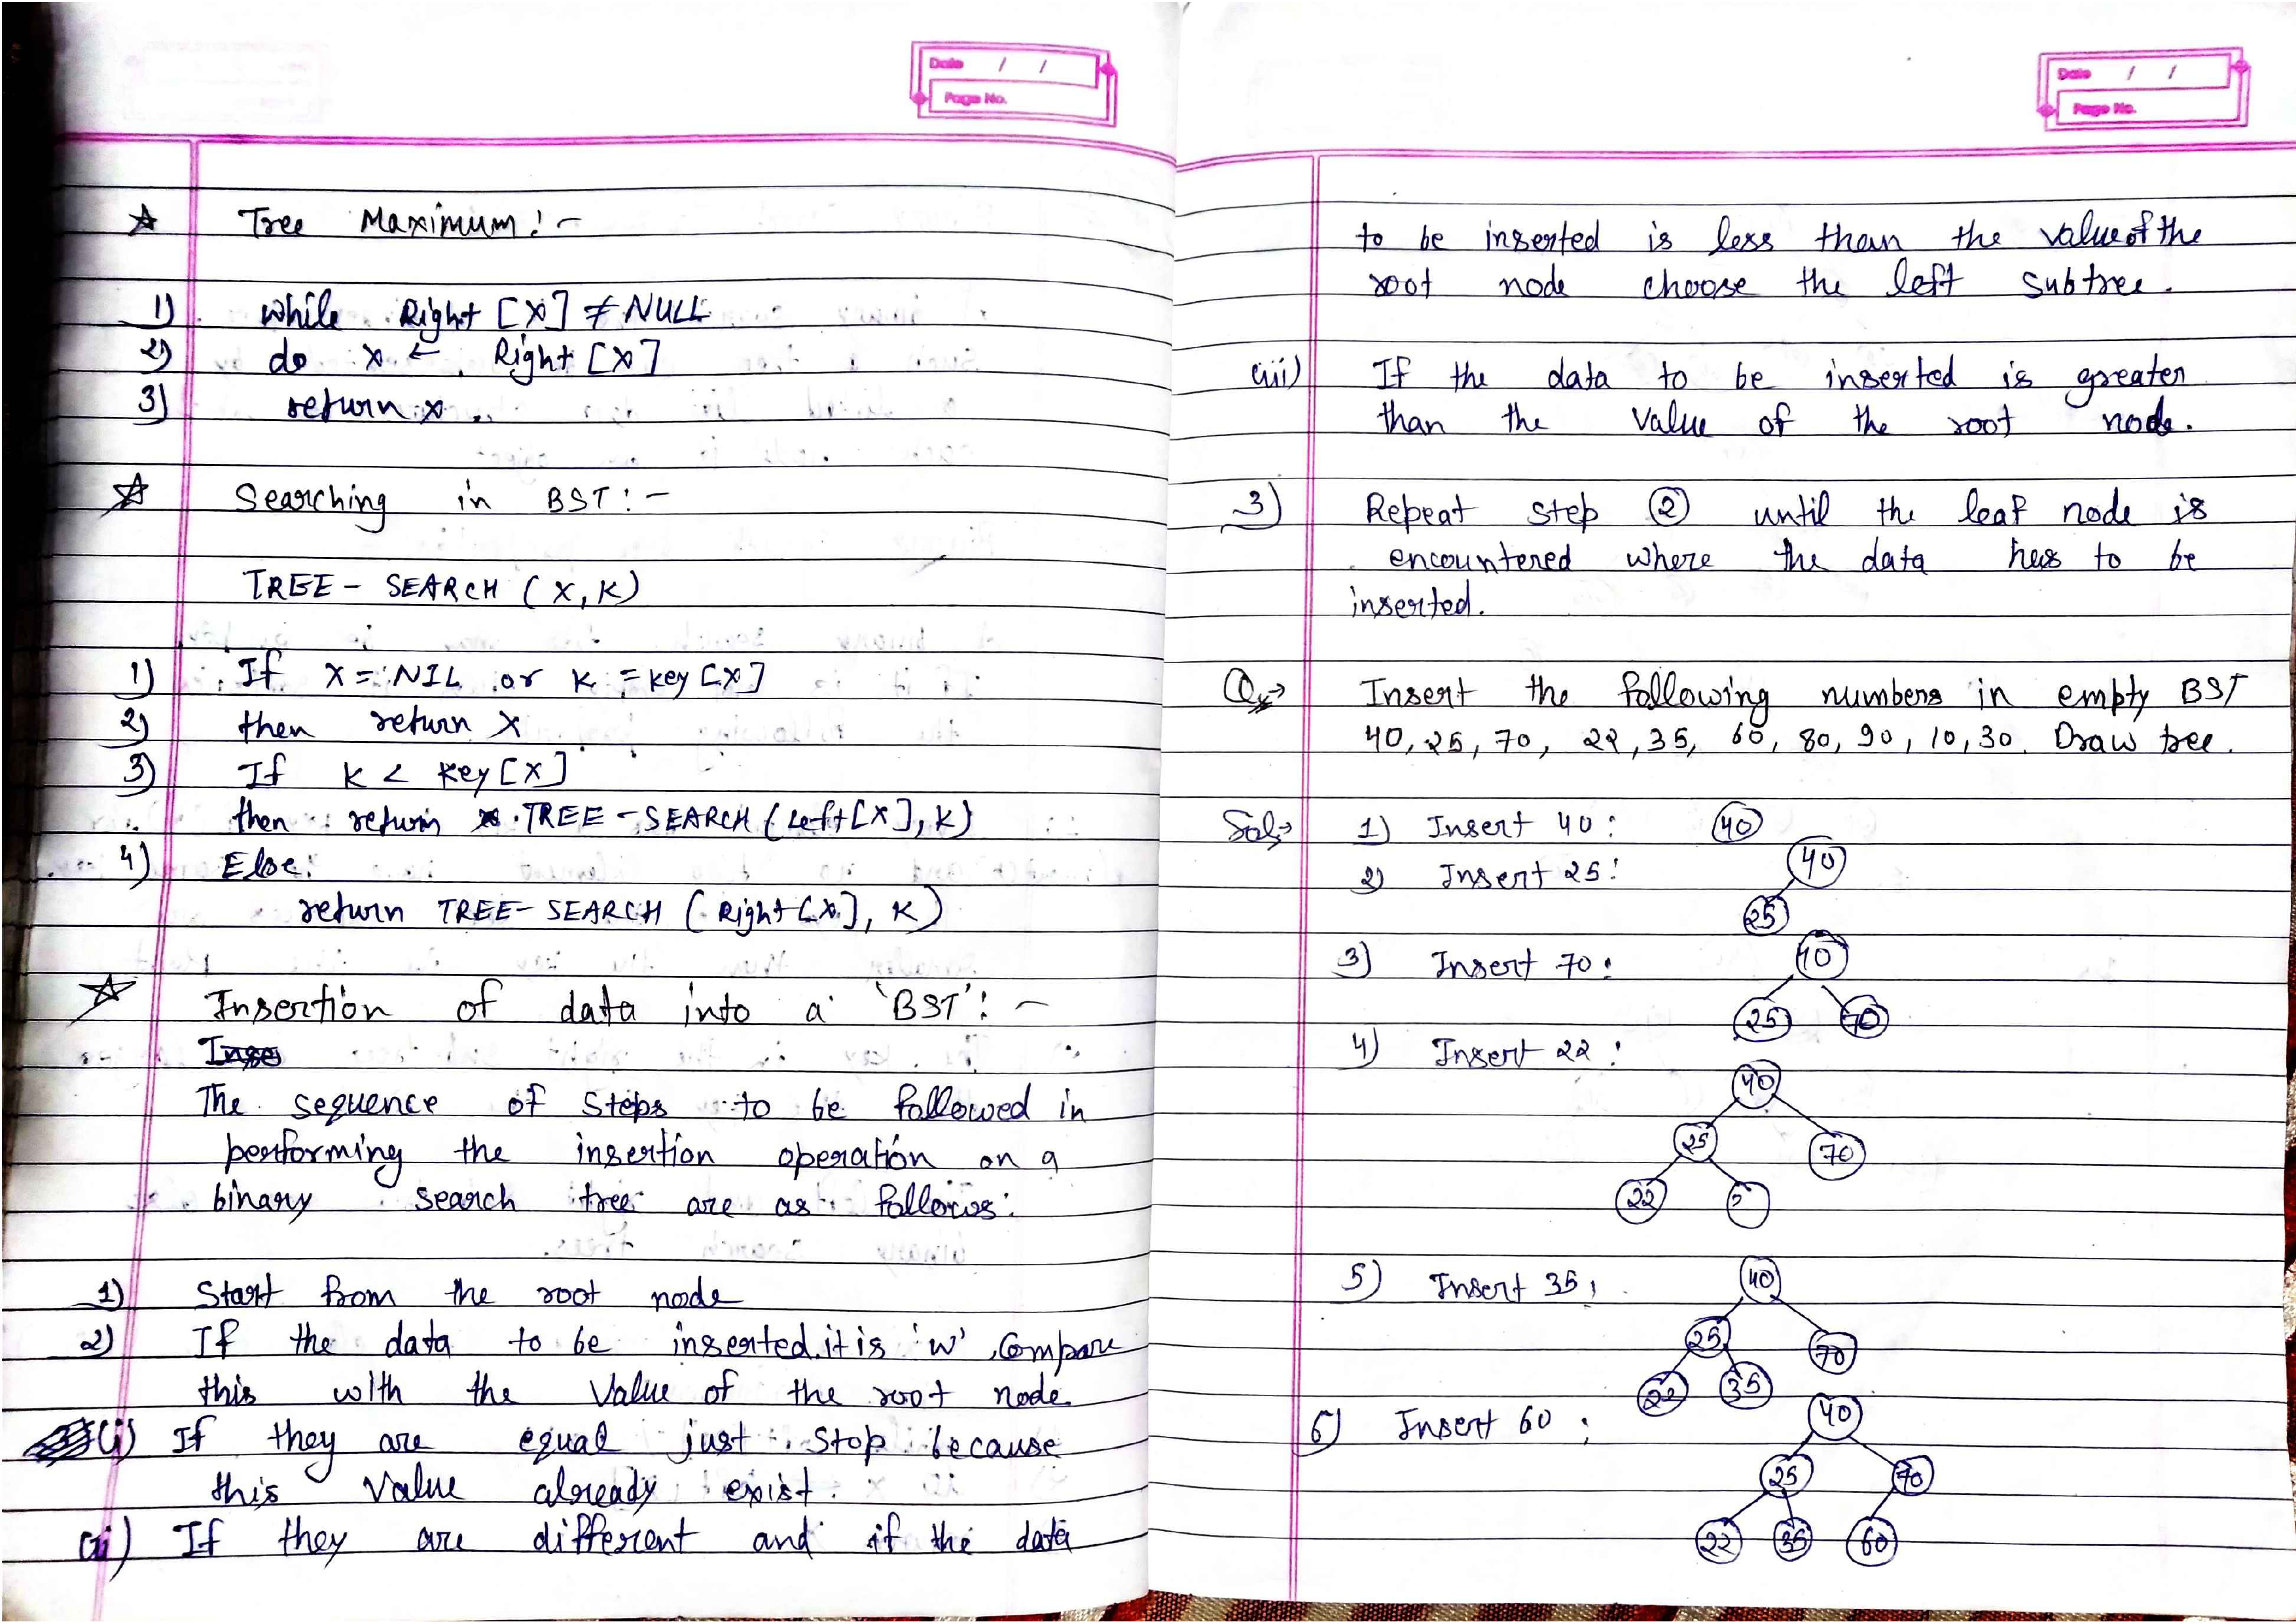 Date / /
Page No.
☆ Tree Maximum :-
1) while Right [x] ≠ NULL
2) do x ← Right [x]
3) return x.
☆ Searching in BST :-
TREE - SEARCH (x, K)
1) If x = NIL or K = key [x]
2) then return x
3) If K < key [x]
then return TREE - SEARCH (Left [x], K)
4) Else:
return TREE - SEARCH (Right [x], K)
☆ Insertion of data into a 'BST' :-
Inse
The sequence of steps to be followed in
performing the insertion operation on a
binary search tree are as follows:
1) Start from the root node
2) If the data to be inserted it is 'w', Compare
this with the Value of the root node.
(i) If they are equal just stop because
this value already exist.
(ii) If they are different and if the data
Date / /
Page No.
to be inserted is less than the value of the
root node choose the left subtree.
(iii) If the data to be inserted is greater
than the value of the root node.
3) Repeat step ② until the leaf node is
encountered where the data has to be
inserted.
Q→ Insert the following numbers in empty BST
40, 25, 70, 22, 35, 60, 80, 90, 10, 30. Draw tree.
Sol→ 1) Insert 40: 40
2) Insert 25: 40
25
3) Insert 70: 40
25 70
4) Insert 22:
40
25 70
22
5) Insert 35: 40
25 70
22 35
6) Insert 60: 40
25 70
22 35 60